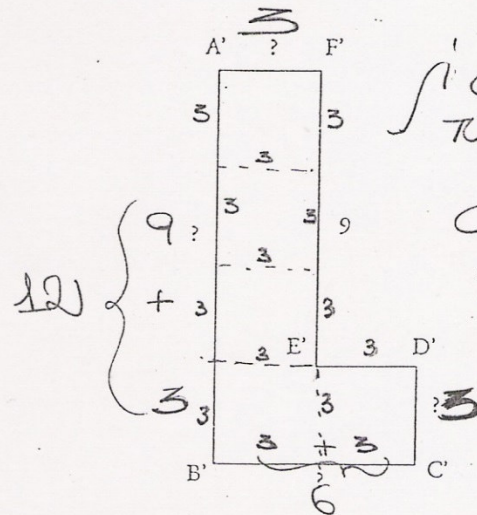 3
A' ? F'
3 3
3
3 3
9 ? 9
3
12 + 3 3
3 E' 3 D'
3 3 3 ? 3
3 + 3
B' ? C'
6